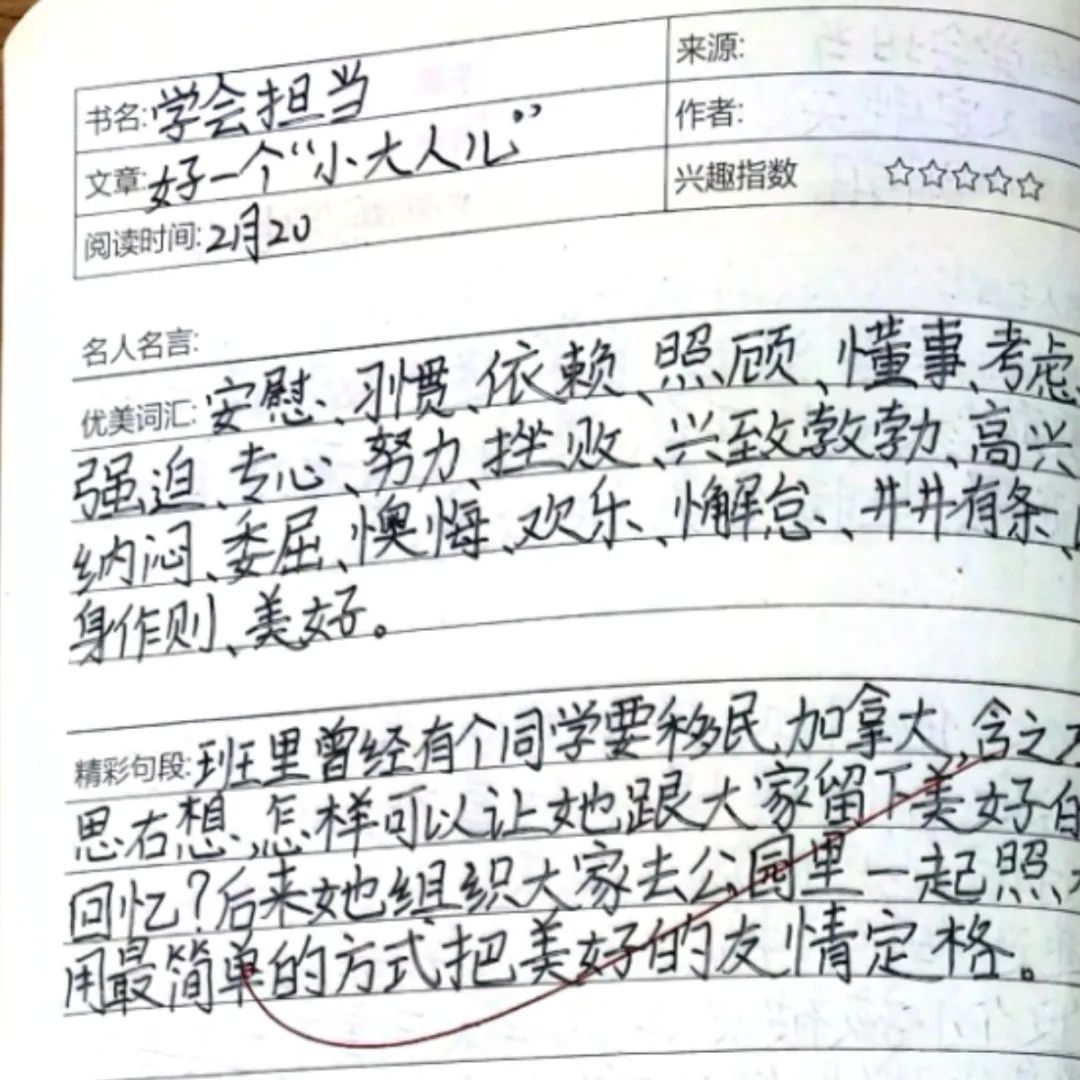 书名:学会担当
来源:
作者:
文章:好一个“小大人儿”
兴趣指数 ☆☆☆☆☆
阅读时间:2月20
名人名言:
优美词汇:安慰、习惯、依赖、照顾、懂事、考虑
强迫、专心、努力、挫败、兴致勃勃、高兴
纳闷、委屈、懊悔、欢乐、懈怠、井井有条、
身作则、美好。
精彩句段:班里曾经有个同学要移民加拿大,含之
思右想,怎样可以让她跟大家留下美好的
回忆?后来她组织大家去公园里一起照
用最简单的方式把美好的友情定格。